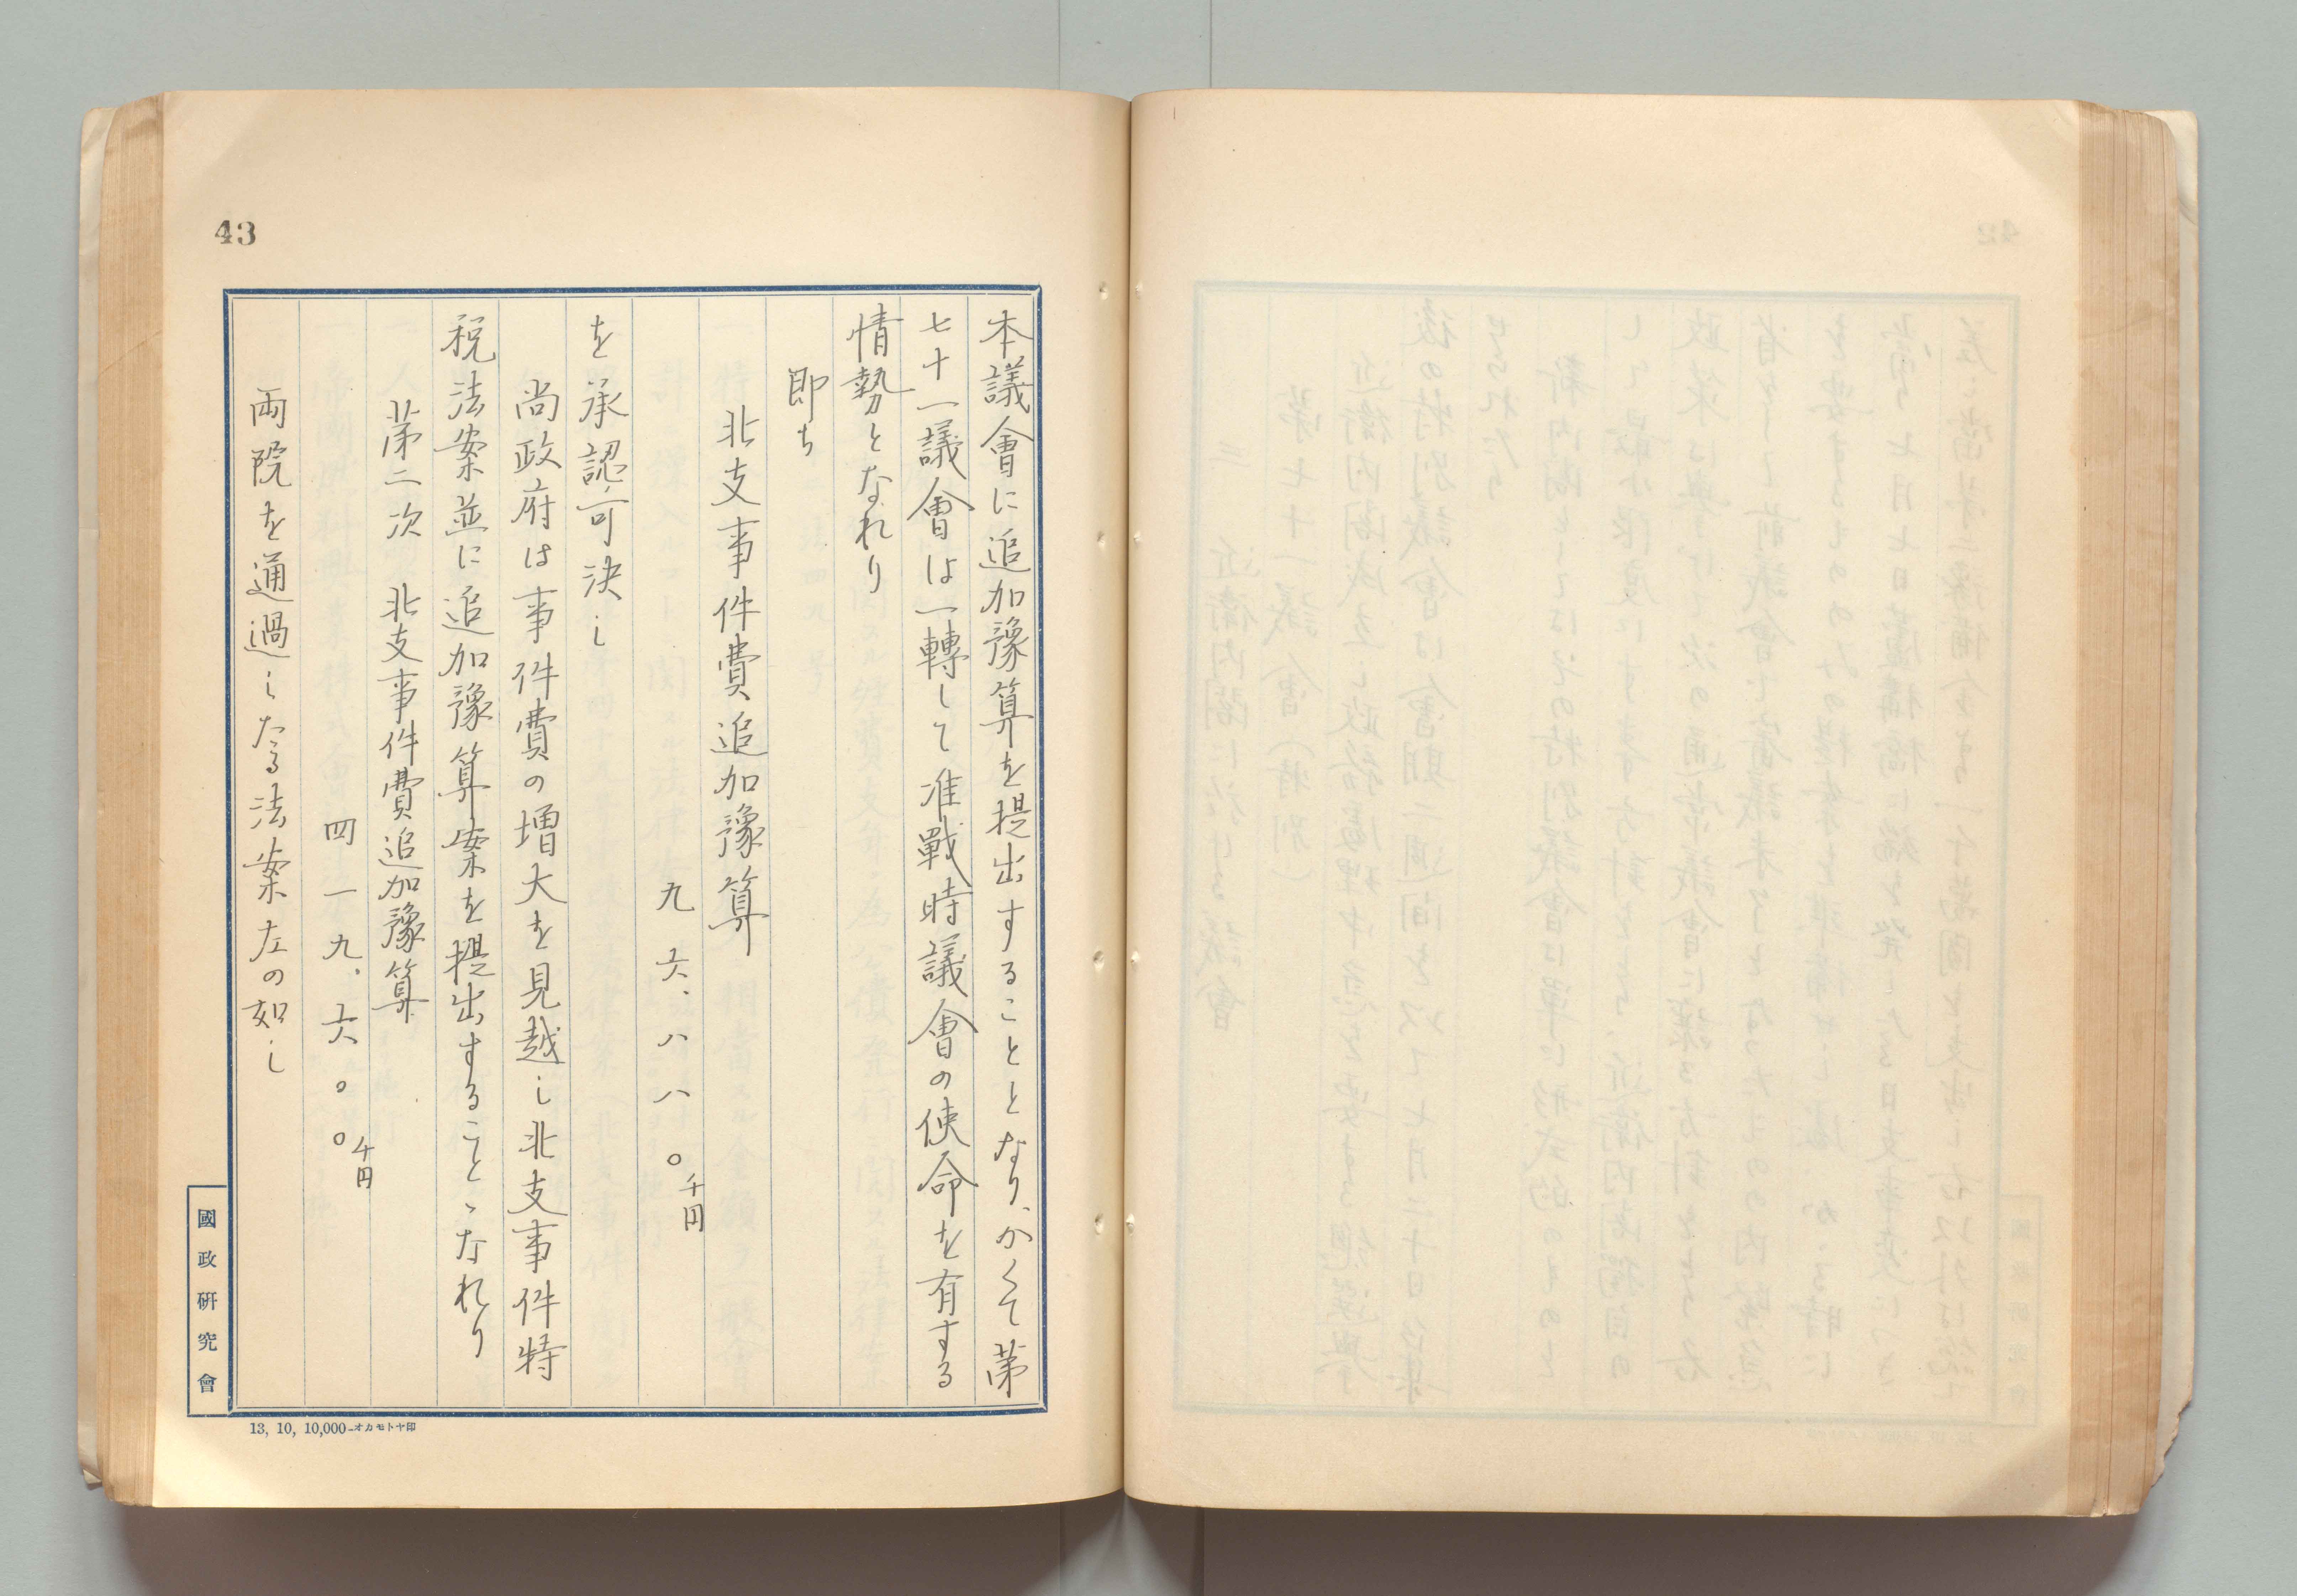 43
本議會に追加豫算を提出することとなり、かくて第
七十一議會は一轉して准戰時議會の使命を有する
情勢となれり
即ち
北支事件費追加豫算
九六、八八〇千円
を承認可決し
尚政府は事件費の増大を見越し北支事件特
税法案並に追加豫算案を提出することゝなれり
第二次 北支事件費追加豫算
四一九、六〇〇千円
両院を通過したる法案左の如し
國政研究會
13, 10, 10,000-オカモトヤ印